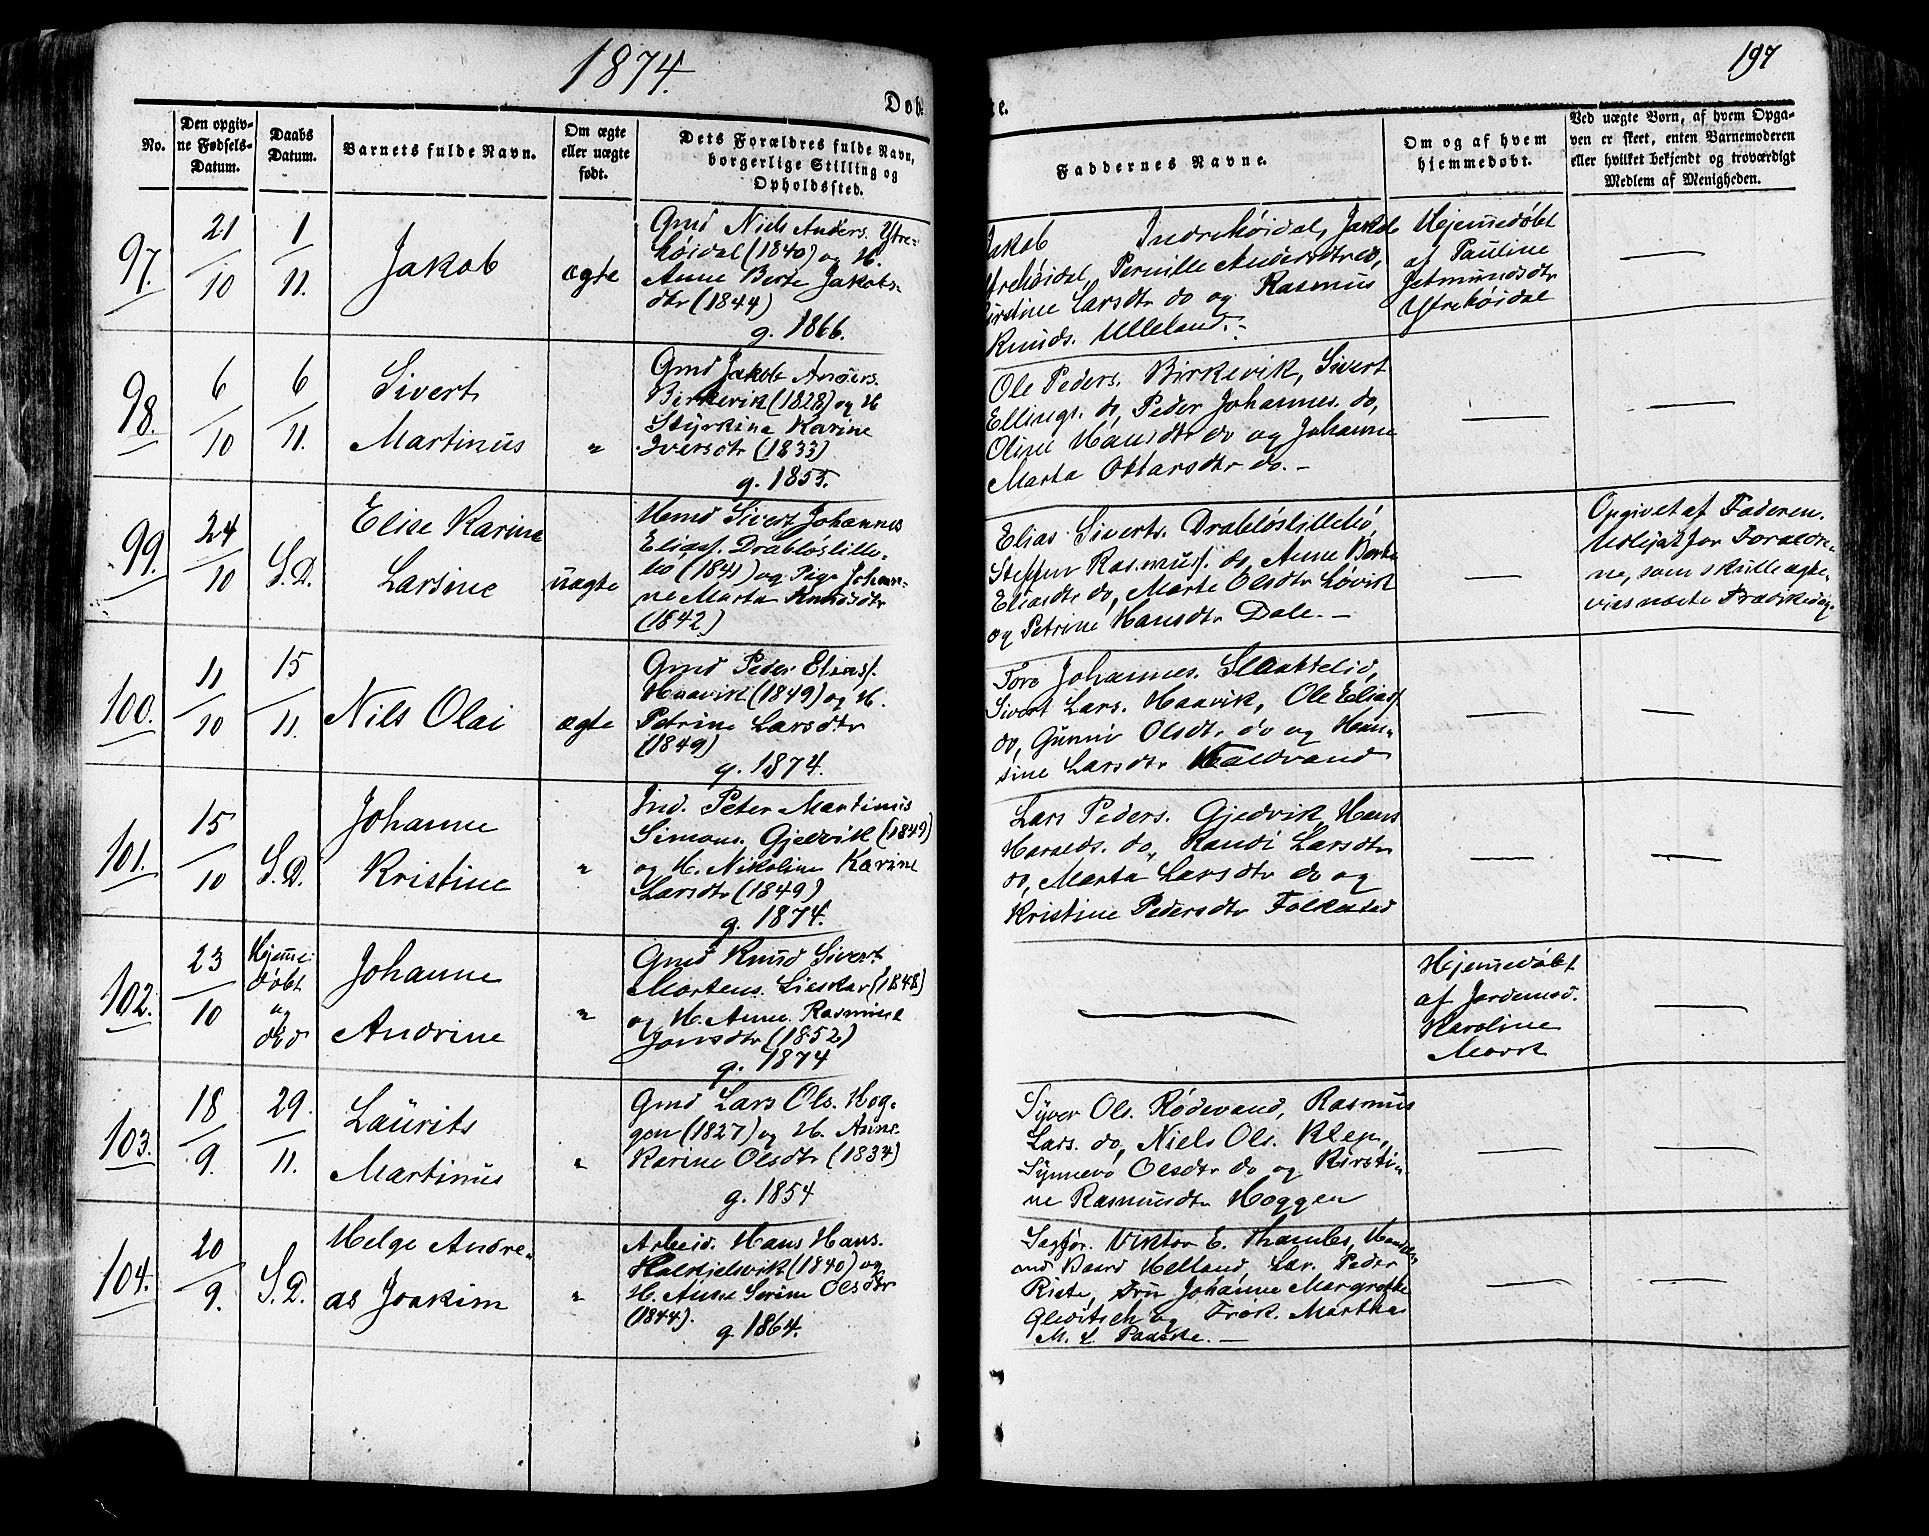 1874.
197
Døbte.
No.
Den opgiv-
ne Fødsels-
Datum.
Daabs
Datum.
Barnets fulde Navn.
Om ægte
eller uægte
født.
Dets Forældres fulde Navn,
borgerlige Stilling og
Opholdssted.
Faddernes Navne.
Om og af hvem
hjemmedøbt.
Ved uægte Børn, af hvem Opga-
ven er skeet, enten Barnemoderen
eller hvilket bekjendt og troværdigt
Medlem af Menigheden.
97.
21/10
1/11.
Jakob
ægte
Gmd Niels Anders. Ytre-
høidal (1840) og H.
Anne Berte Jakobs-
dtr (1844)
g. 1866.
Jakob Indrehøidal, Jakob
Ytrehøidal, Pernille Andersdtr do,
Kirstine Larsdtr do og Rasmus
Knuds. Ulleland.-
Hjemmedøbt
af Pauline
Jetmundsdtr
Ytrehøidal
98.
6/10
6/11.
Sivert
Martinus
"
Gmd Jakob Anders.
Birkevik (1828) og H
Styrkine Karine
Iversdtr (1833)
g. 1855.
Ole Peders. Birkevik, Sivert
Ellings. do, Peder Johannes. do,
Oline Hansdtr do og Johanne
Marta Ottarsdtr do. -
99.
24/10
S.D.
Elise Karine
Larsine
uægte
Ugmd Sivert Johannes
Eliass. Drabløslille-
bø (1841) og Pige Johan-
ne Marta Knudsdtr
(1842.)
Elias Siverts. Drabløslillebø,
Steffen Rasmuss. do, Anne Berte
Eliasdtr do, Marte Olsdtr Løvik
og Petrine Hansdtr Dale. -
Opgivet af Faderen.
Udlyst for Forældre-
ne, som skulle ægte-
vies næste Prædikedag.
100.
11/10
15/11.
Nils Olai
ægte
Gmd Peder Eliass.
Haavik (1849) og H.
Petrine Larsdtr
(1849)
g. 1874.
Tore Johannes. Slaktelid,
Sivert Lars. Haavik, Ole Eliass
do, Gunni Olsdtr do og Han-
sine Larsdtr Kaldvand
101.
15/10
S.D.
Johanne
Kristine
"
Ind. Peter Martinus
Simons. Gjedvik (1849)
og H. Nikoline Karine
Larsdtr (1849)
g. 1874.
Lars Peders. Gjedvik, Hans
Haralds. do, Randi Larsdtr
do, Marta Larsdtr do og
Kristine Pedersdtr Folkestad
102.
23/10
Hjemme-
døbt
og
død
Johanne
Andrine
"
Gmd Knud Sivert
Martens. Lieskar (1848)
og H. Anne Rasmine
Jonsdtr (1852)
g. 1874
Hjemmedøbt
af Jordemod.
Karoline
Mørk
103.
18/9.
29/11.
Laurits
Martinus
"
Gmd Lars Ols. Hog-
gen (1827) og H. Anne
Karine Olsdtr (1834)
g. 1854
Syver Ols. Rødevand, Rasmus
Lars. do, Niels Ols. Klep,
Synneve Olsdtr do og Kirsti-
ne Rasmusdtr Hoggen
104.
20/9.
S.D.
Helge Andre-
as Joakim
"
Arbeid. Hans Hans.
Halkjelsvik (1840) og
H. Anne Serine Olsdtr
(1844).
g. 1864.
Sagfør. Viktor E. Thambs, Handels-
md Baard Helland, Lær. Peder
Riste, Fru Johanne Margrethe
Gleditsch og Frøk. Martha
M. L. Paaske. -